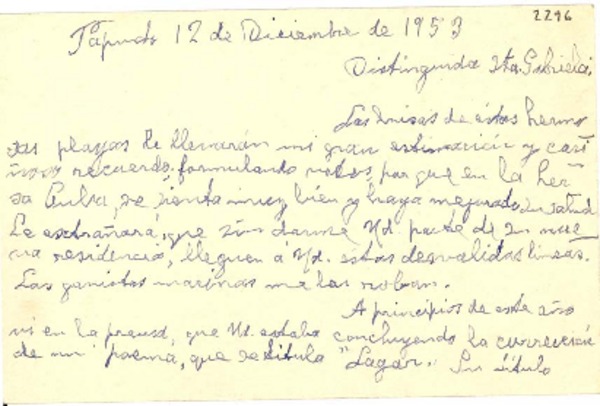 2296
Papudo 12 de Diciembre de 1953
Distinguida Sta. Gabriela:
Las brisas de éstas hermo
sas playas le llevarán mi gran estimación y cari
ñoso recuerdo, formulando votos, por que en la her
sa Cuba, se sienta muy bien y haya mejorado su salud
Le extrañará, que sin darme Ud. parte de su nue
va residencia, lleguen á Ud. estas desvalidas líneas.
Las gaviotas marinas me las roban.
A principios de este año
vi en la prensa, que Ud. estaba concluyendo la corrección
de un poema, que se titula "Lagar. Su título